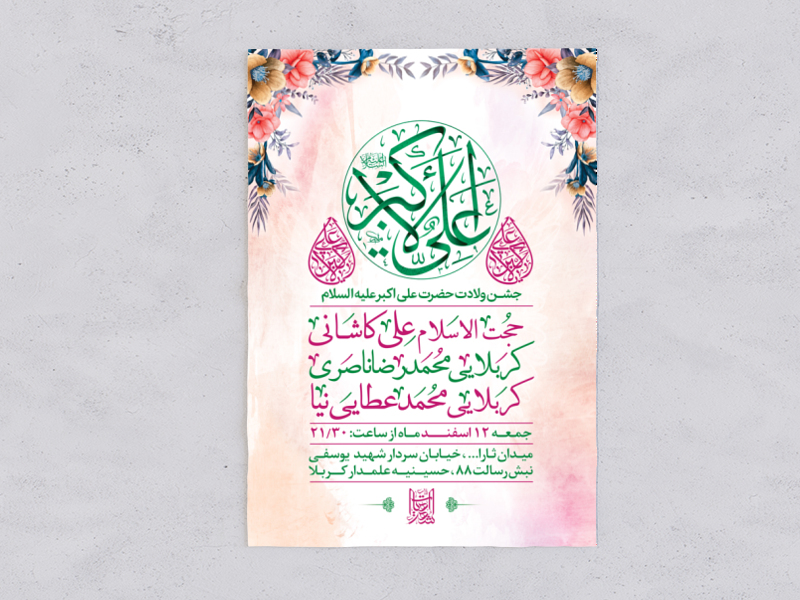 علی الاکبر
جشن ولادت حضرت علی اکبر علیه السلام
حجت الاسلام علی کاشانی
کربلایی محمدرضا ناصری
کربلایی محمد عطایی نیا
جمعه ۱۲ اسفند ماه از ساعت: ۲۱/۳۰
میدان ثارا...، خیابان سردار شهید یوسفی
نبش رسالت ۸۸، حسینیه علمدار کربلا